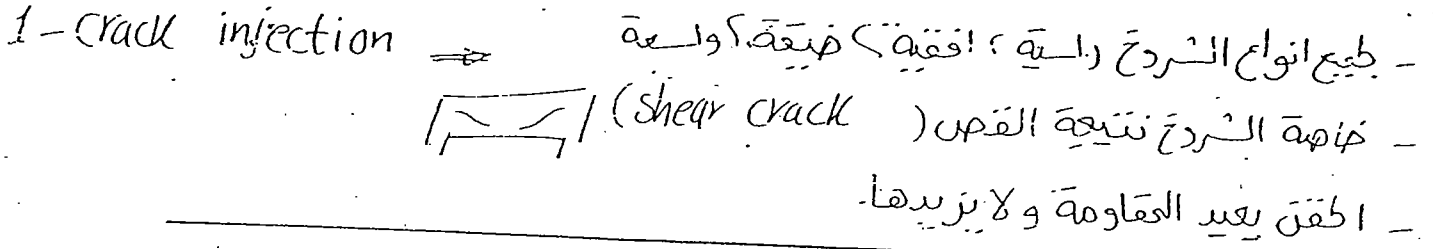 1 - Crack injection ⇒ - لجميع انواع الشروخ راسية ؛ افقية ؟ ضيقة ؟ واسعة
- خاصة الشروخ نتيجة القص ( shear crack )
- الحقن يعيد المقاومة و لا يزيدها.